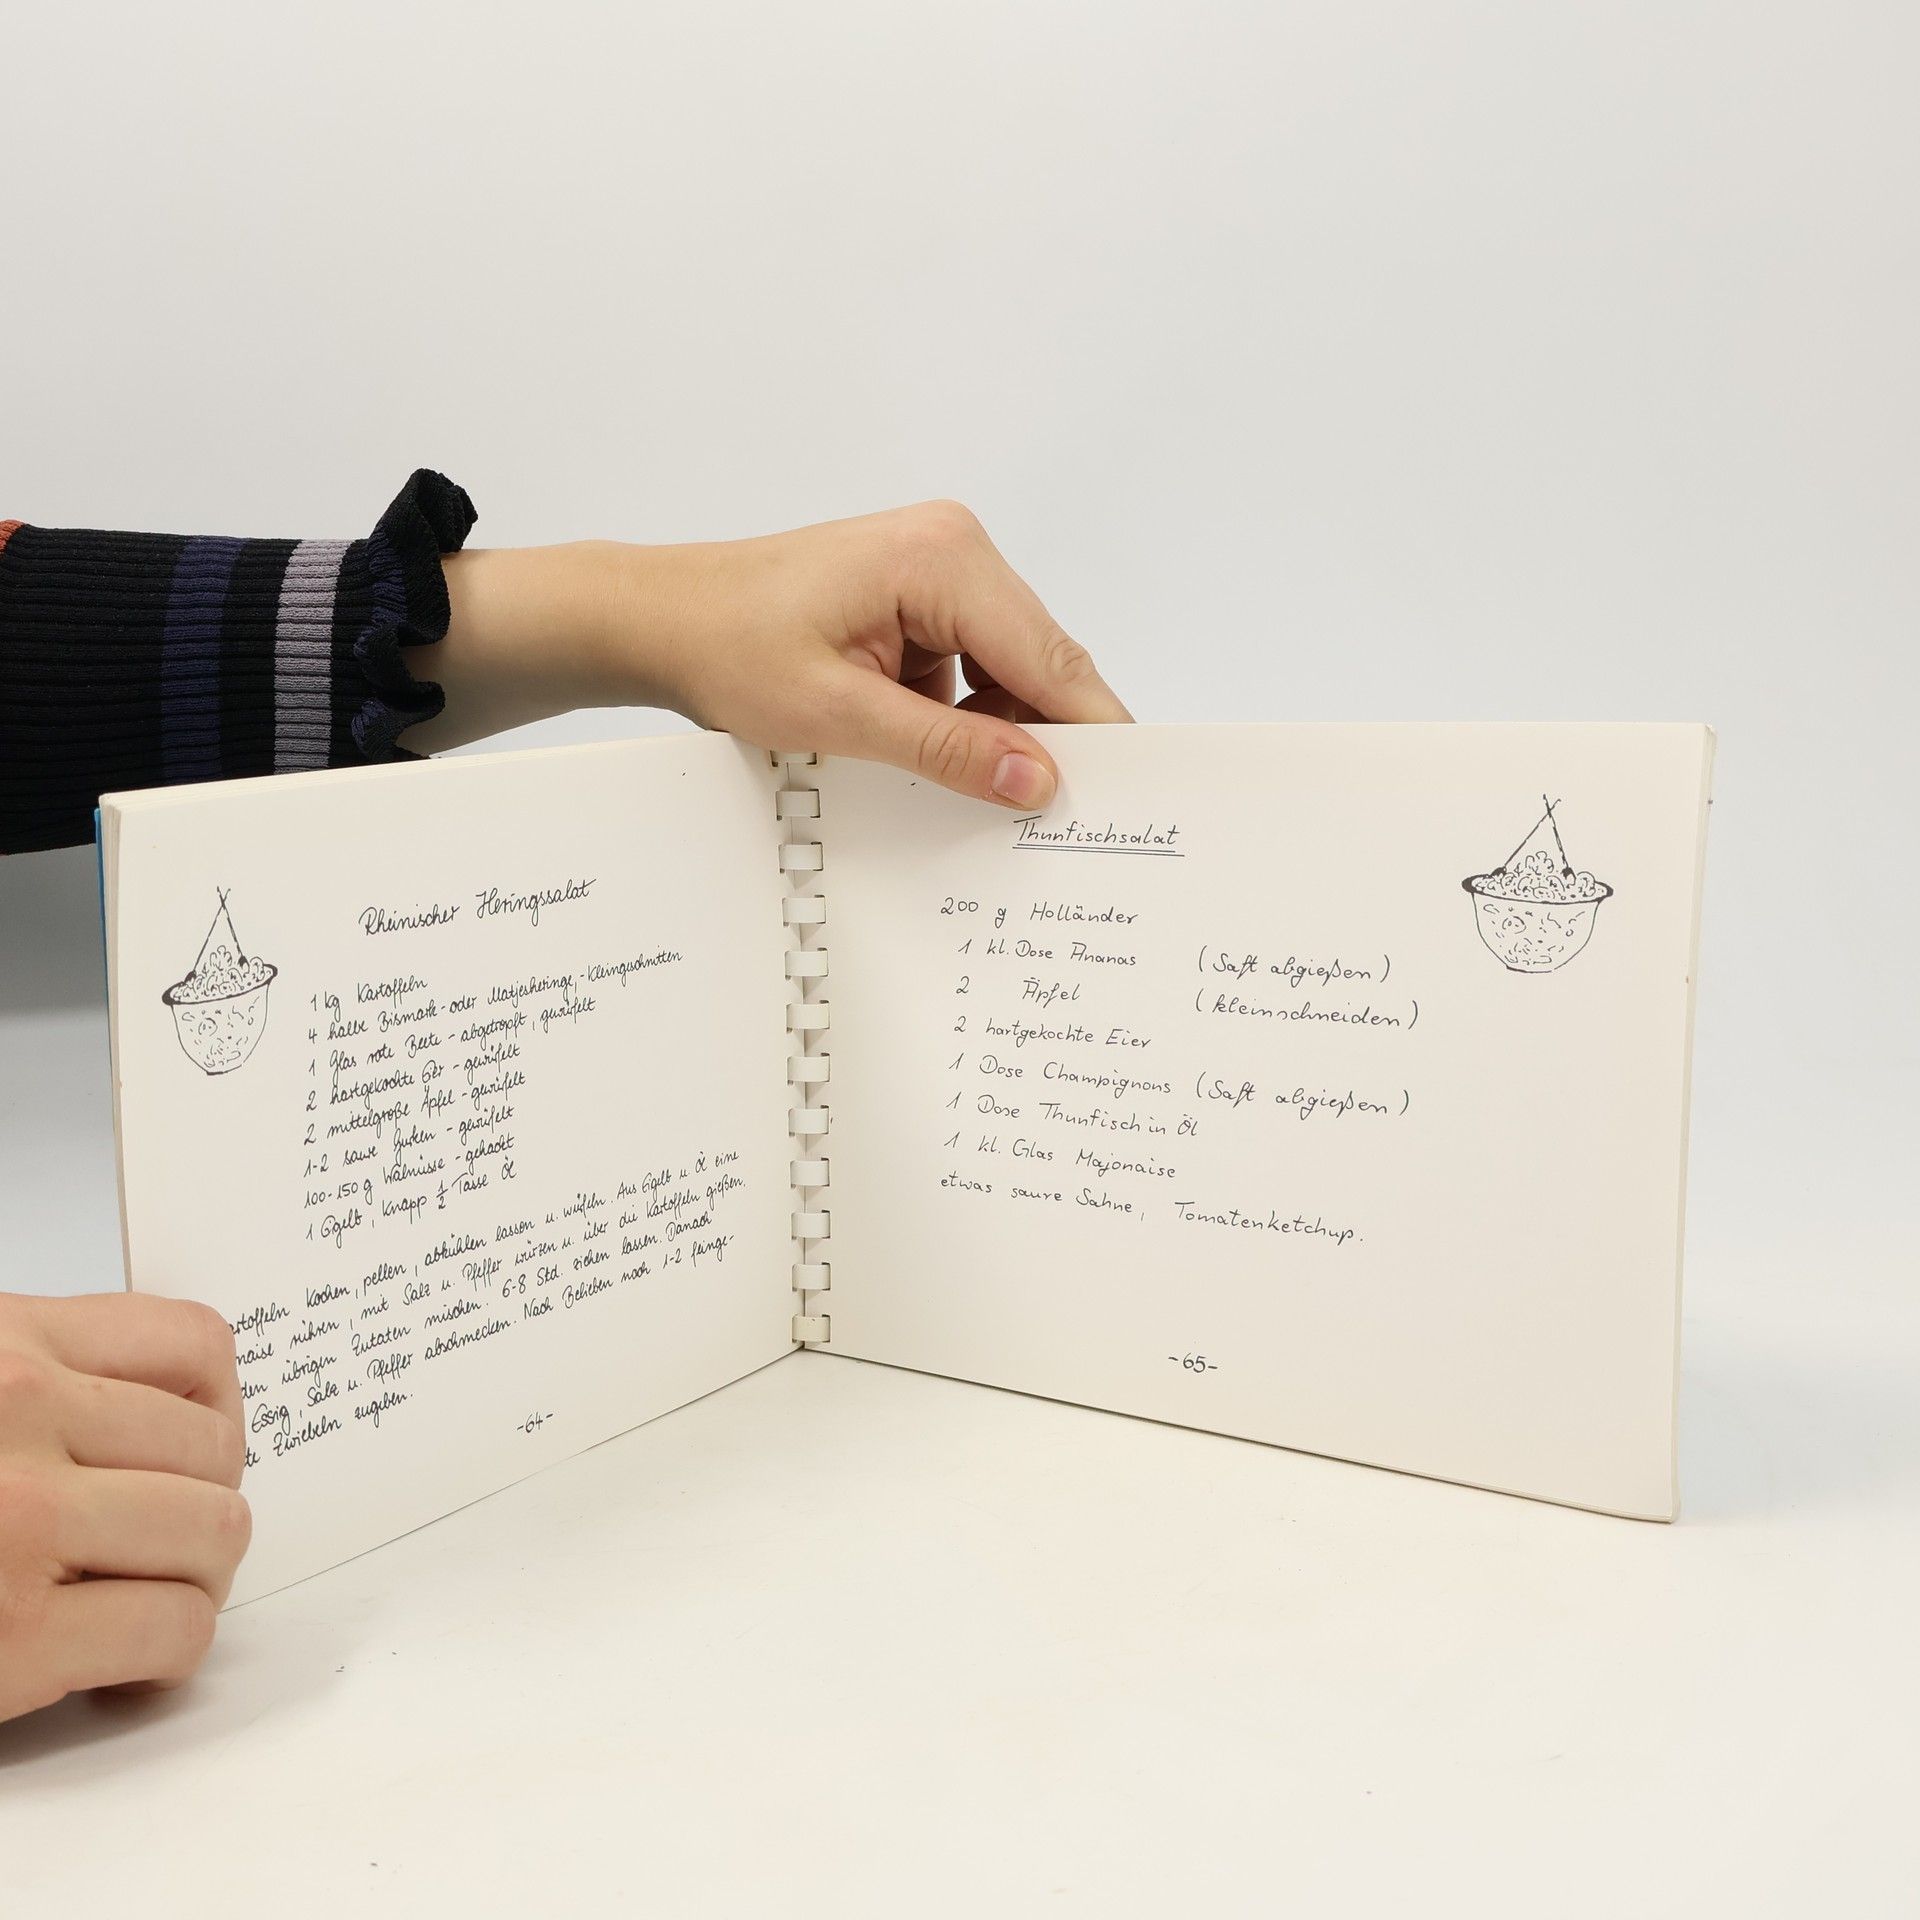 Rheinischer Heringssalat
1 kg Kartoffeln
4 halbe Bismark- oder Matjesheringe,- kleingeschnitten
1 Glas rote Beete - abgetropft, gewürfelt
2 hartgekochte Eier - gewürfelt
2 mittelgroße Äpfel - gewürfelt
1-2 saure Gurken - gewürfelt
100-150 g Walnüsse - gehackt
1 Eigelb, knapp 1/2 Tasse Öl
artoffeln kochen, pellen, abkühlen lassen u. würfeln. Aus Eigelb u. Öl eine
naise rühren, mit Salz u. Pfeffer würzen u. über die Kartoffeln gießen.
den übrigen Zutaten mischen. 6-8 Std. ziehen lassen. Danach
Essig, Salz u. Pfeffer abschmecken. Nach Belieben noch 1-2 feinge-
te Zwiebeln zugeben.
-64-
Thunfischsalat
200 g Holländer
1 kl. Dose Ananas (Saft abgießen)
2 Äpfel (kleinschneiden)
2 hartgekochte Eier
1 Dose Champignons (Saft abgießen)
1 Dose Thunfisch in Öl
1 kl. Glas Majonaise
etwas saure Sahne, Tomatenketchup.
-65-